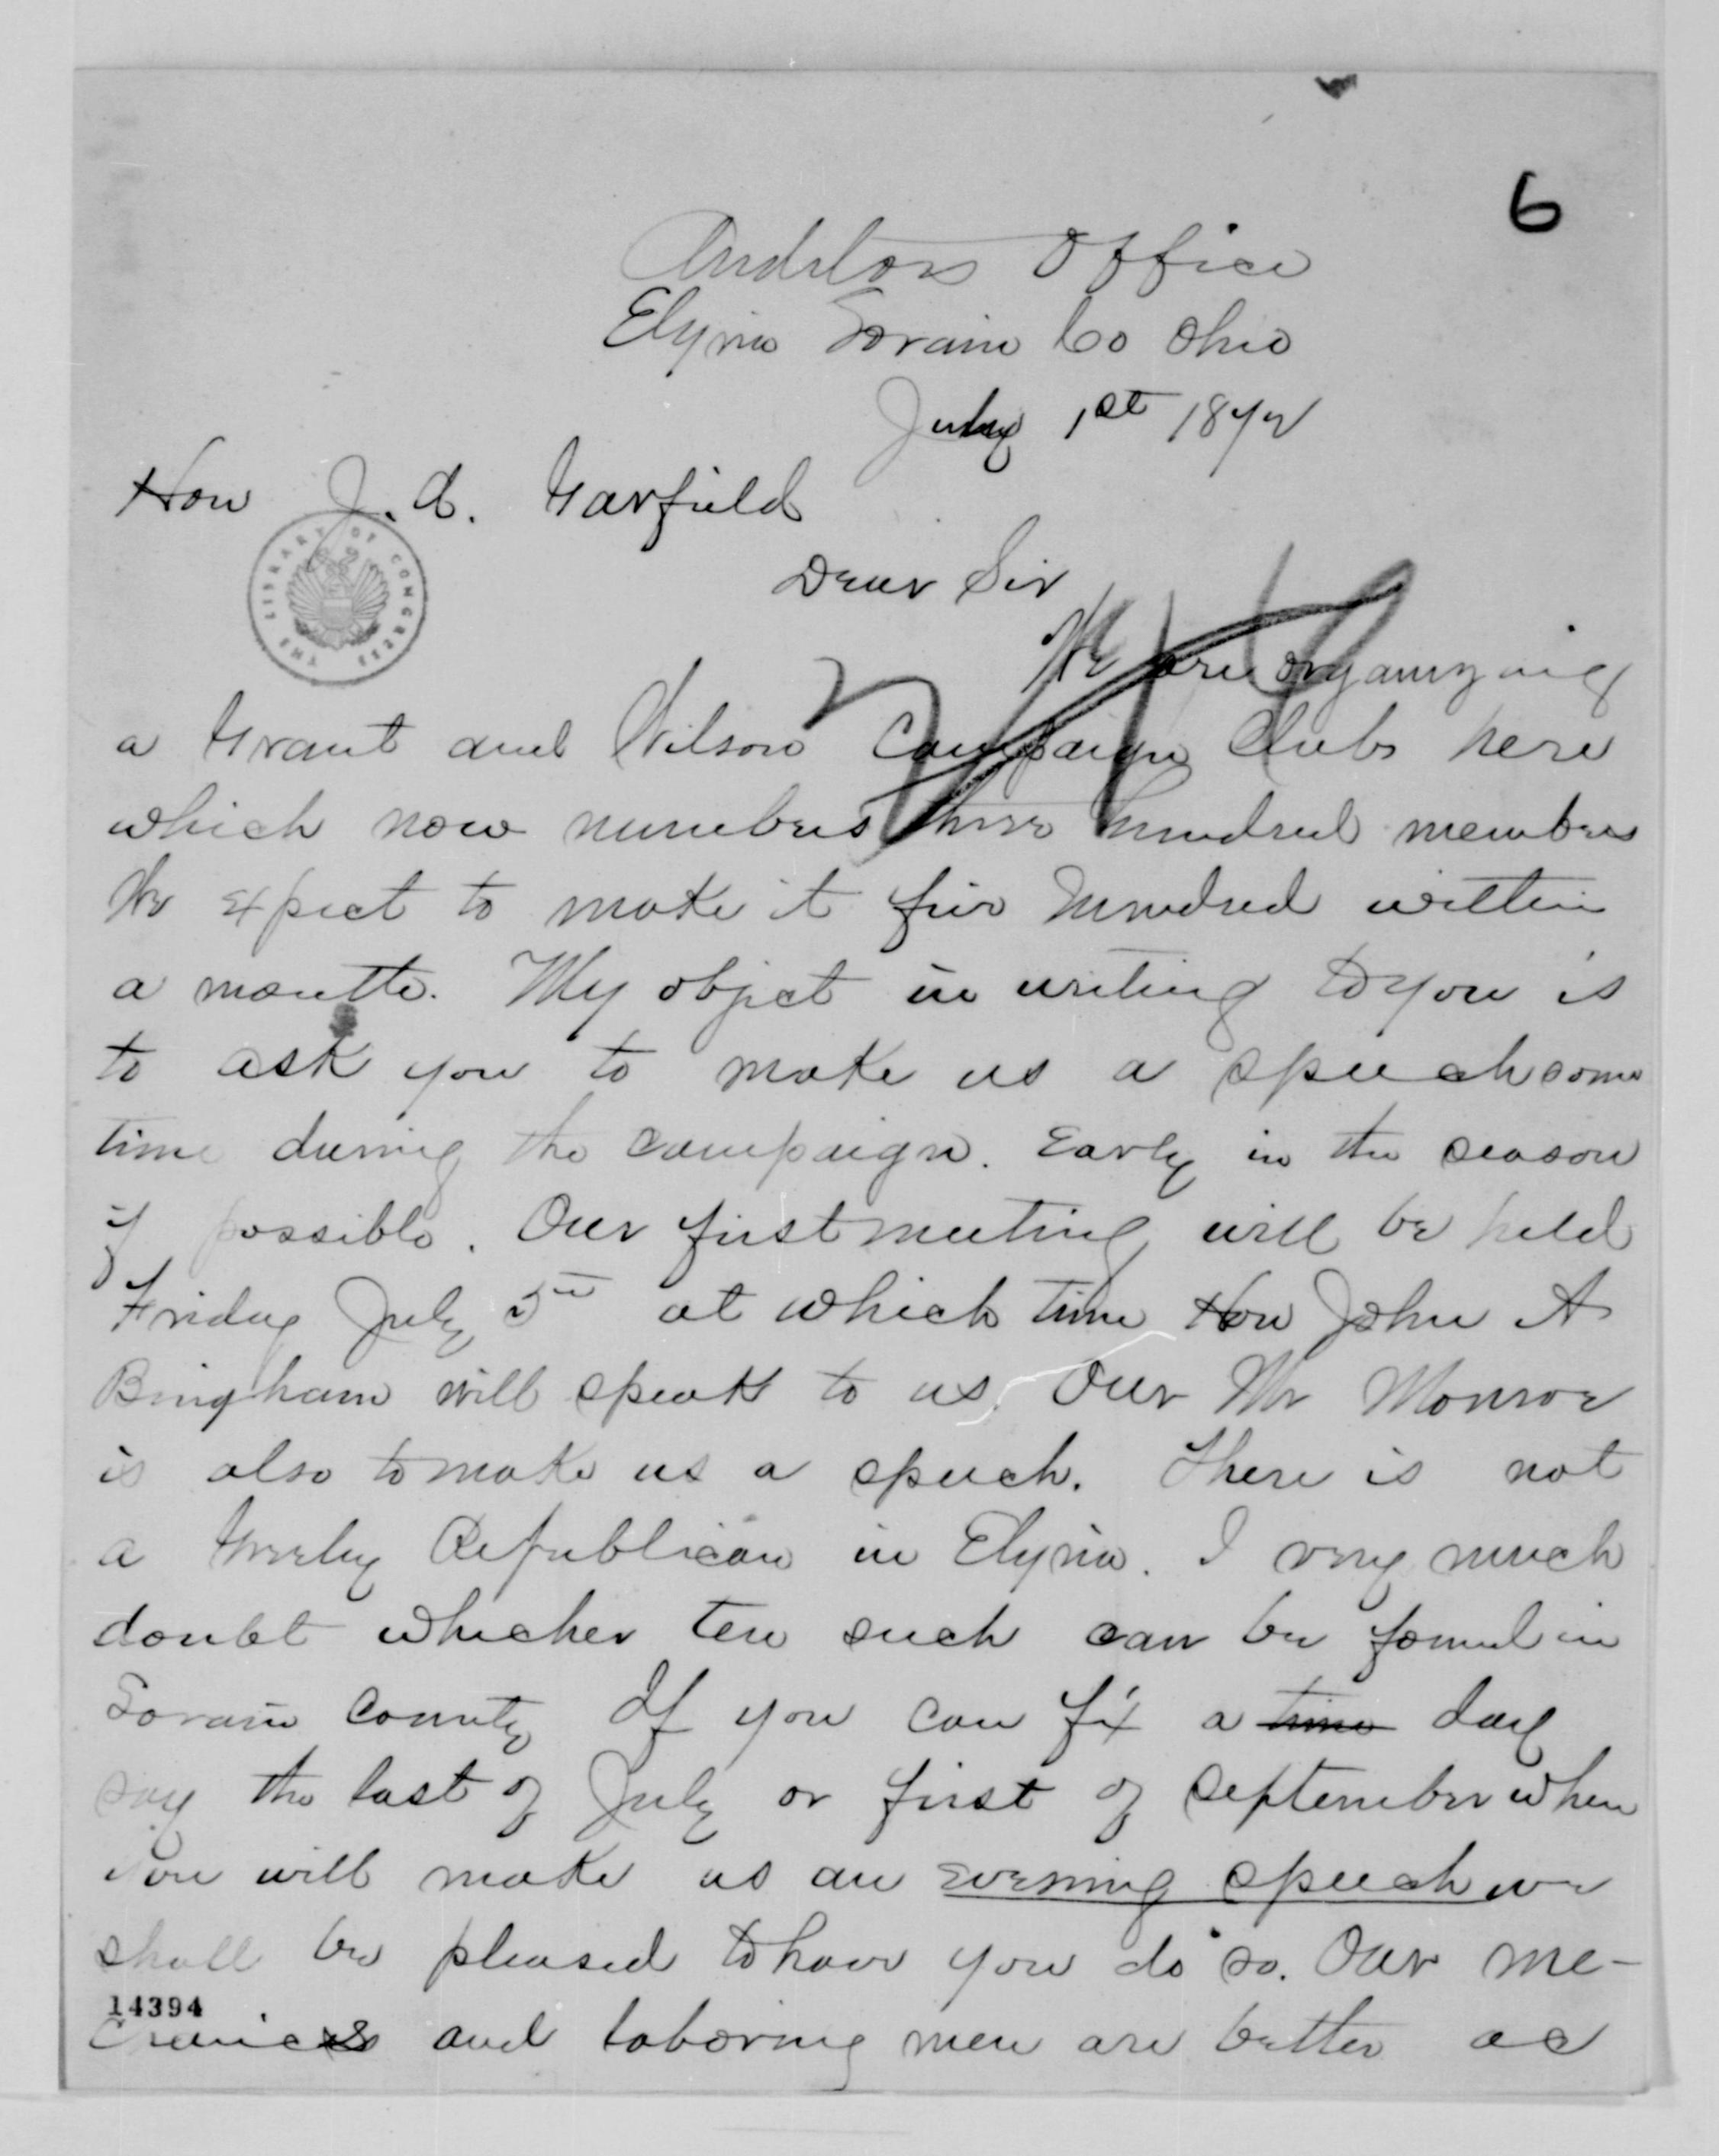 6
Auditors Office
Elyria Lorain Co Ohio
July 1st 1872
Hon J. A. Garfield
THE LIBRARY OF CONGRESS
Dear Sir
We are organizing
a Grant and Wilson Campaign Club here
which now numbers three hundred members
We expect to make it five hundred within
a month. My object in writing to you is
to ask you to make us a speech some
time during the campaign. Early in the season
if possible. Our first meeting will be held
Friday July 5th at which time Hon John A
Bingham will speak to us. Our Mr Monroe
is also to make us a speech. There is not
a Greeley Republican in Elyria. I very much
doubt whether ten such can be found in
Lorain County If you can fix a time day
say the last of July or first of September when
you will make us an evening speech we
shall be pleased to have you do so. Our me-
14394
chanics and laboring men are better ac